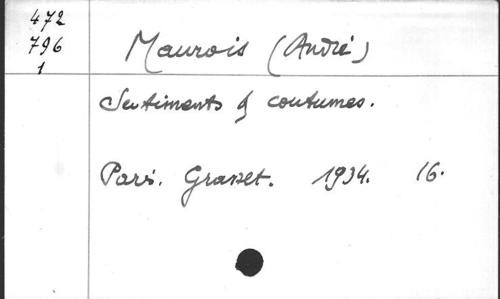 472
796
1
Maurois (André)
Sentiments & coutumes.
Paris. Grasset. 1934. 16.